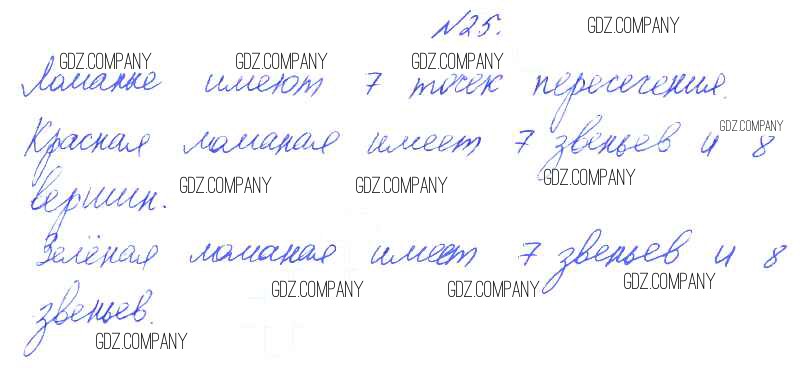 №25.
GDZ.COMPANY
GDZ.COMPANY GDZ.COMPANY GDZ.COMPANY
Ломаные имеют 7 точек пересечения.
GDZ.COMPANY
Красная ломаная имеет 7 звеньев и 8
GDZ.COMPANY GDZ.COMPANY GDZ.COMPANY
вершин.
Зелёная ломаная имеет 7 звеньев и 8
GDZ.COMPANY GDZ.COMPANY GDZ.COMPANY
звеньев.
GDZ.COMPANY